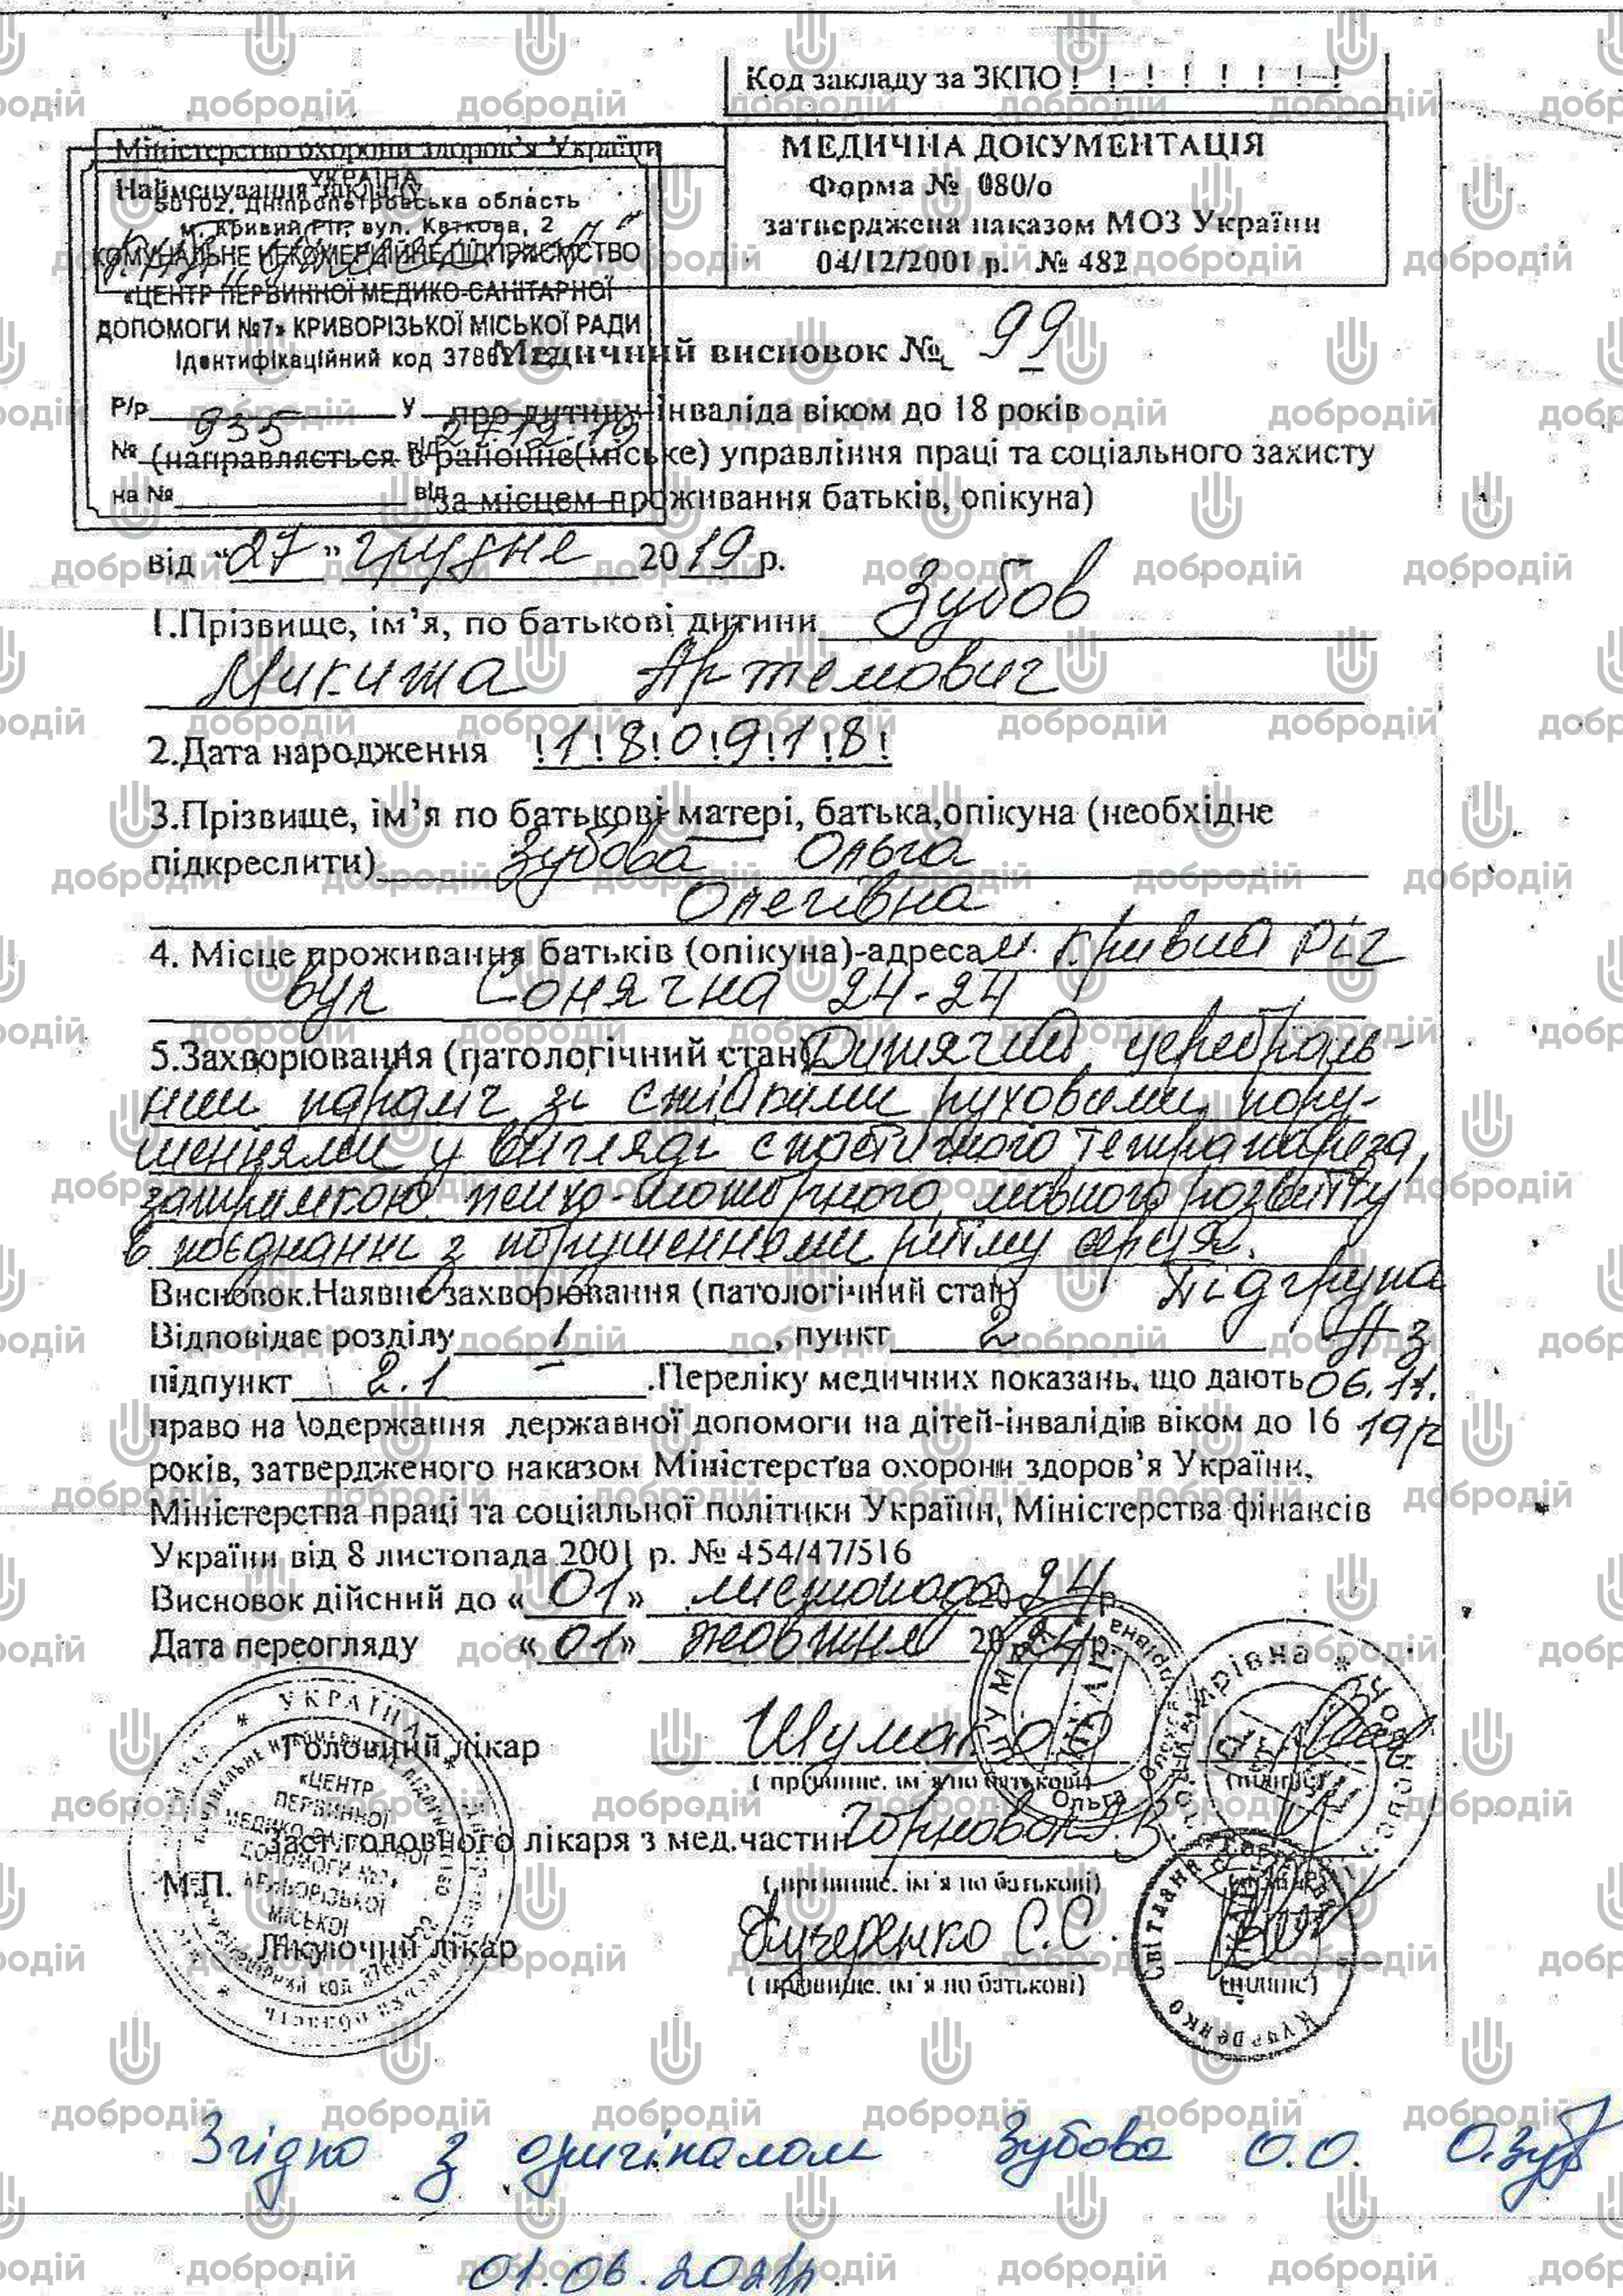 Код закладу за ЗКПО
Міністерство охорони здоров'я України
Найменування закладу
МЕДИЧНА ДОКУМЕНТАЦІЯ
Форма № 080/о
затверджена наказом МОЗ України
04/12/2001 р. № 482
УКРАЇНА
50102, Дніпропетровська область
м. Кривий Ріг, вул. Каткова, 2
КОМУНАЛЬНЕ НЕКОМЕРЦІЙНЕ ПІДПРИЄМСТВО
«ЦЕНТР ПЕРВИННОЇ МЕДИКО-САНІТАРНОЇ
ДОПОМОГИ №7» КРИВОРІЗЬКОЇ МІСЬКОЇ РАДИ
Ідентифікаційний код
Р/р у
№ 935 від 27.12.19
на № від
Медичний висновок № 99
про дитину-інваліда віком до 18 років
(направляється в районне(міське) управління праці та соціального захисту
за місцем проживання батьків, опікуна)
від "27" грудне 2019 р.
1.Прізвище, ім'я, по батькові дитини Зубов
Микита Артемович
2.Дата народження !1!8!0!9!1!8!
3.Прізвище, ім'я по батькові матері, батька,опікуна (необхідне
підкреслити) Зубова Ольга
Олегівна
4. Місце проживання батьків (опікуна)-адреса м. Кривий Ріг
вул Сонячна 24-24
5.Захворювання (патологічний стан) Дитячий церебраль-
ний параліч зі стійкими руховими пору-
шеннями у вигляді спастичного тетрапареза,
затримкою психо-моторного, мовного розвитку
в поєднанні з порушеннями ритму серця.
Висновок.Наявне захворювання (патологічний стан) Підгрупа
Відповідає розділу 1, пункт 2 А з
підпункт 2.1 .Переліку медичних показань, що дають 06.11.
право на \одержання державної допомоги на дітей-інвалідів віком до 16 19р
років, затвердженого наказом Міністерства охорони здоров'я України,
Міністерства праці та соціальної політики України, Міністерства фінансів
України від 8 листопада 2001 р. № 454/47/516
Висновок дійсний до «01» листопада 2024 р.
Дата переогляду «01» жовтня 2024 р.
Головний лікар
( прізвище, ім'я по батькові) (підпис)
Заст.головного лікаря з мед.частин
( прізвище, ім'я по батькові)
М.П.
Лікуючий лікар Кучеренко С.С.
( прізвище, ім'я по батькові) (підпис)
УКРАЇНА
«ЦЕНТР
ПЕРВИННОЇ
МЕДИКО-САНІТАРНОЇ
ДОПОМОГИ №7»
КРИВОРІЗЬКОЇ
МІСЬКОЇ
Ольга
Світлана
Кучеренко
Згідно з оригіналом Зубова О.О.
01.06.2021р.
добродій